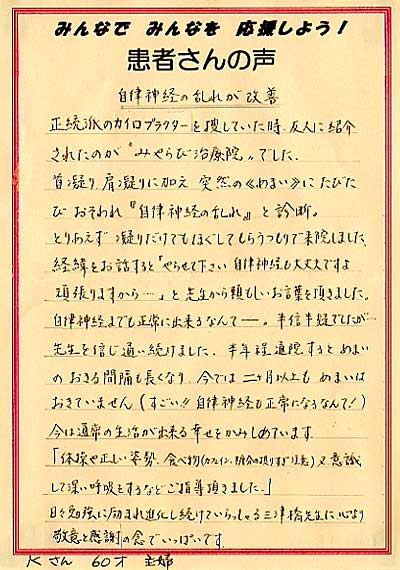 みんなで みんなを 応援しよう！
患者さんの声
自律神経の乱れが改善
正統派のカイロプラクターを捜していた時、友人に紹介
されたのが〝みやらび治療院〟でした。
首凝り、肩凝りに加え 突然の《めまい》にたびた
び おそわれ『自律神経の乱れ』と診断。
とりあえず 凝りだけでもほぐしてもらうつもりで来院しました。
経緯をお話すると「やらせて下さい 自律神経も大丈夫ですよ
頑張りますから…」と先生から頼もしいお言葉を頂きました。
自律神経までも正常に出来るなんて—。半信半疑でしたが…
先生を信じ通い続けました。半年程通院するとめまい
の おきる間隔も長くなり 今では 二ヶ月以上も めまいは
おきていません（すごい!! 自律神経も正常になるなんて！）
今は通常の生活が出来る幸せをかみしめています。
「体操や正しい姿勢、食べ物(カフェイン、糖分の摂りすぎ注意) 又 意識
して深い呼吸をするなどご指導頂きました。」
日々勉強に励まれ進化し続けていらっしゃる三津橋先生に、心より
敬意と感謝の念でいっぱいです。
Kさん 60才 主婦